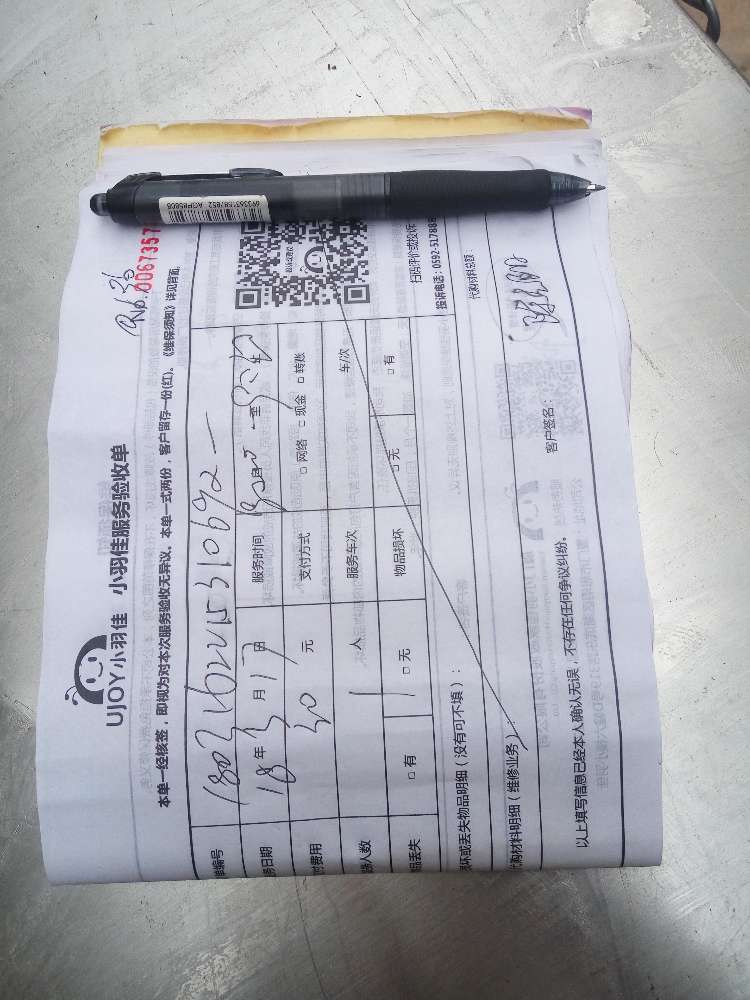 UJOY小羽佳 小羽佳服务验收单
No.0067357
本单一经核签，即视为对本次服务验收无异议。本单一式两份，客户留存一份(红)。《维保须知》详见背面
单编号 1803162215310692
务日期 18年3月17日 服务时间 至
付费用 30元 支付方式 □网络 □现金 □转账
务人数 1人 服务车次 车/次
品丢失 □有 □无 物品损坏 □无 □有
损坏或丢失物品明细（没有可不填）：
代购材料明细（维修业务）： 代购材料总额：
以上填写信息已经本人确认无误，不存在任何争议纠纷。 客户签名：
扫码评价或投诉
投诉电话：0592-517888
6933631587852 AGPR5808